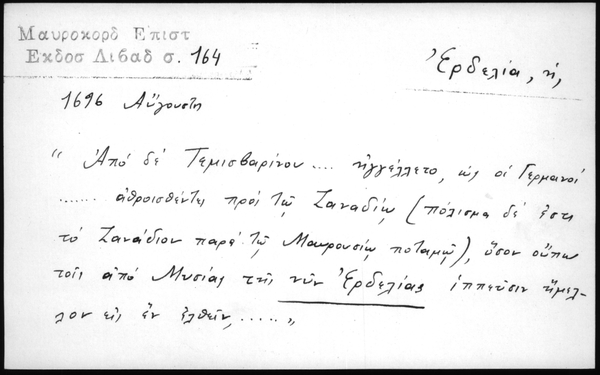 Μαυροκορδ Επιστ
Εκδοσ Λιβαδ σ. 164
Ἐρδελία, ἡ,
1696 Αὔγουστ
" Ἀπό δέ Τεμισβαρίνου .... ἠγγέλλετο, ὡς οἱ Γερμανοί
....... ἀθροισθέντες πρός τῷ Ζαναδίῳ (πόλισμα δέ ἐστι
τό Ζανάδιον παρά τῷ Μαυρουσίῳ ποταμῷ), ὅσον οὔπω
τοῖς ἀπό Μυσίας τῆς νῦν Ἐρδελίας ἱππεῦσιν ἤμελ-
λον εἰς ἓν ἐλθεῖν, ..... "